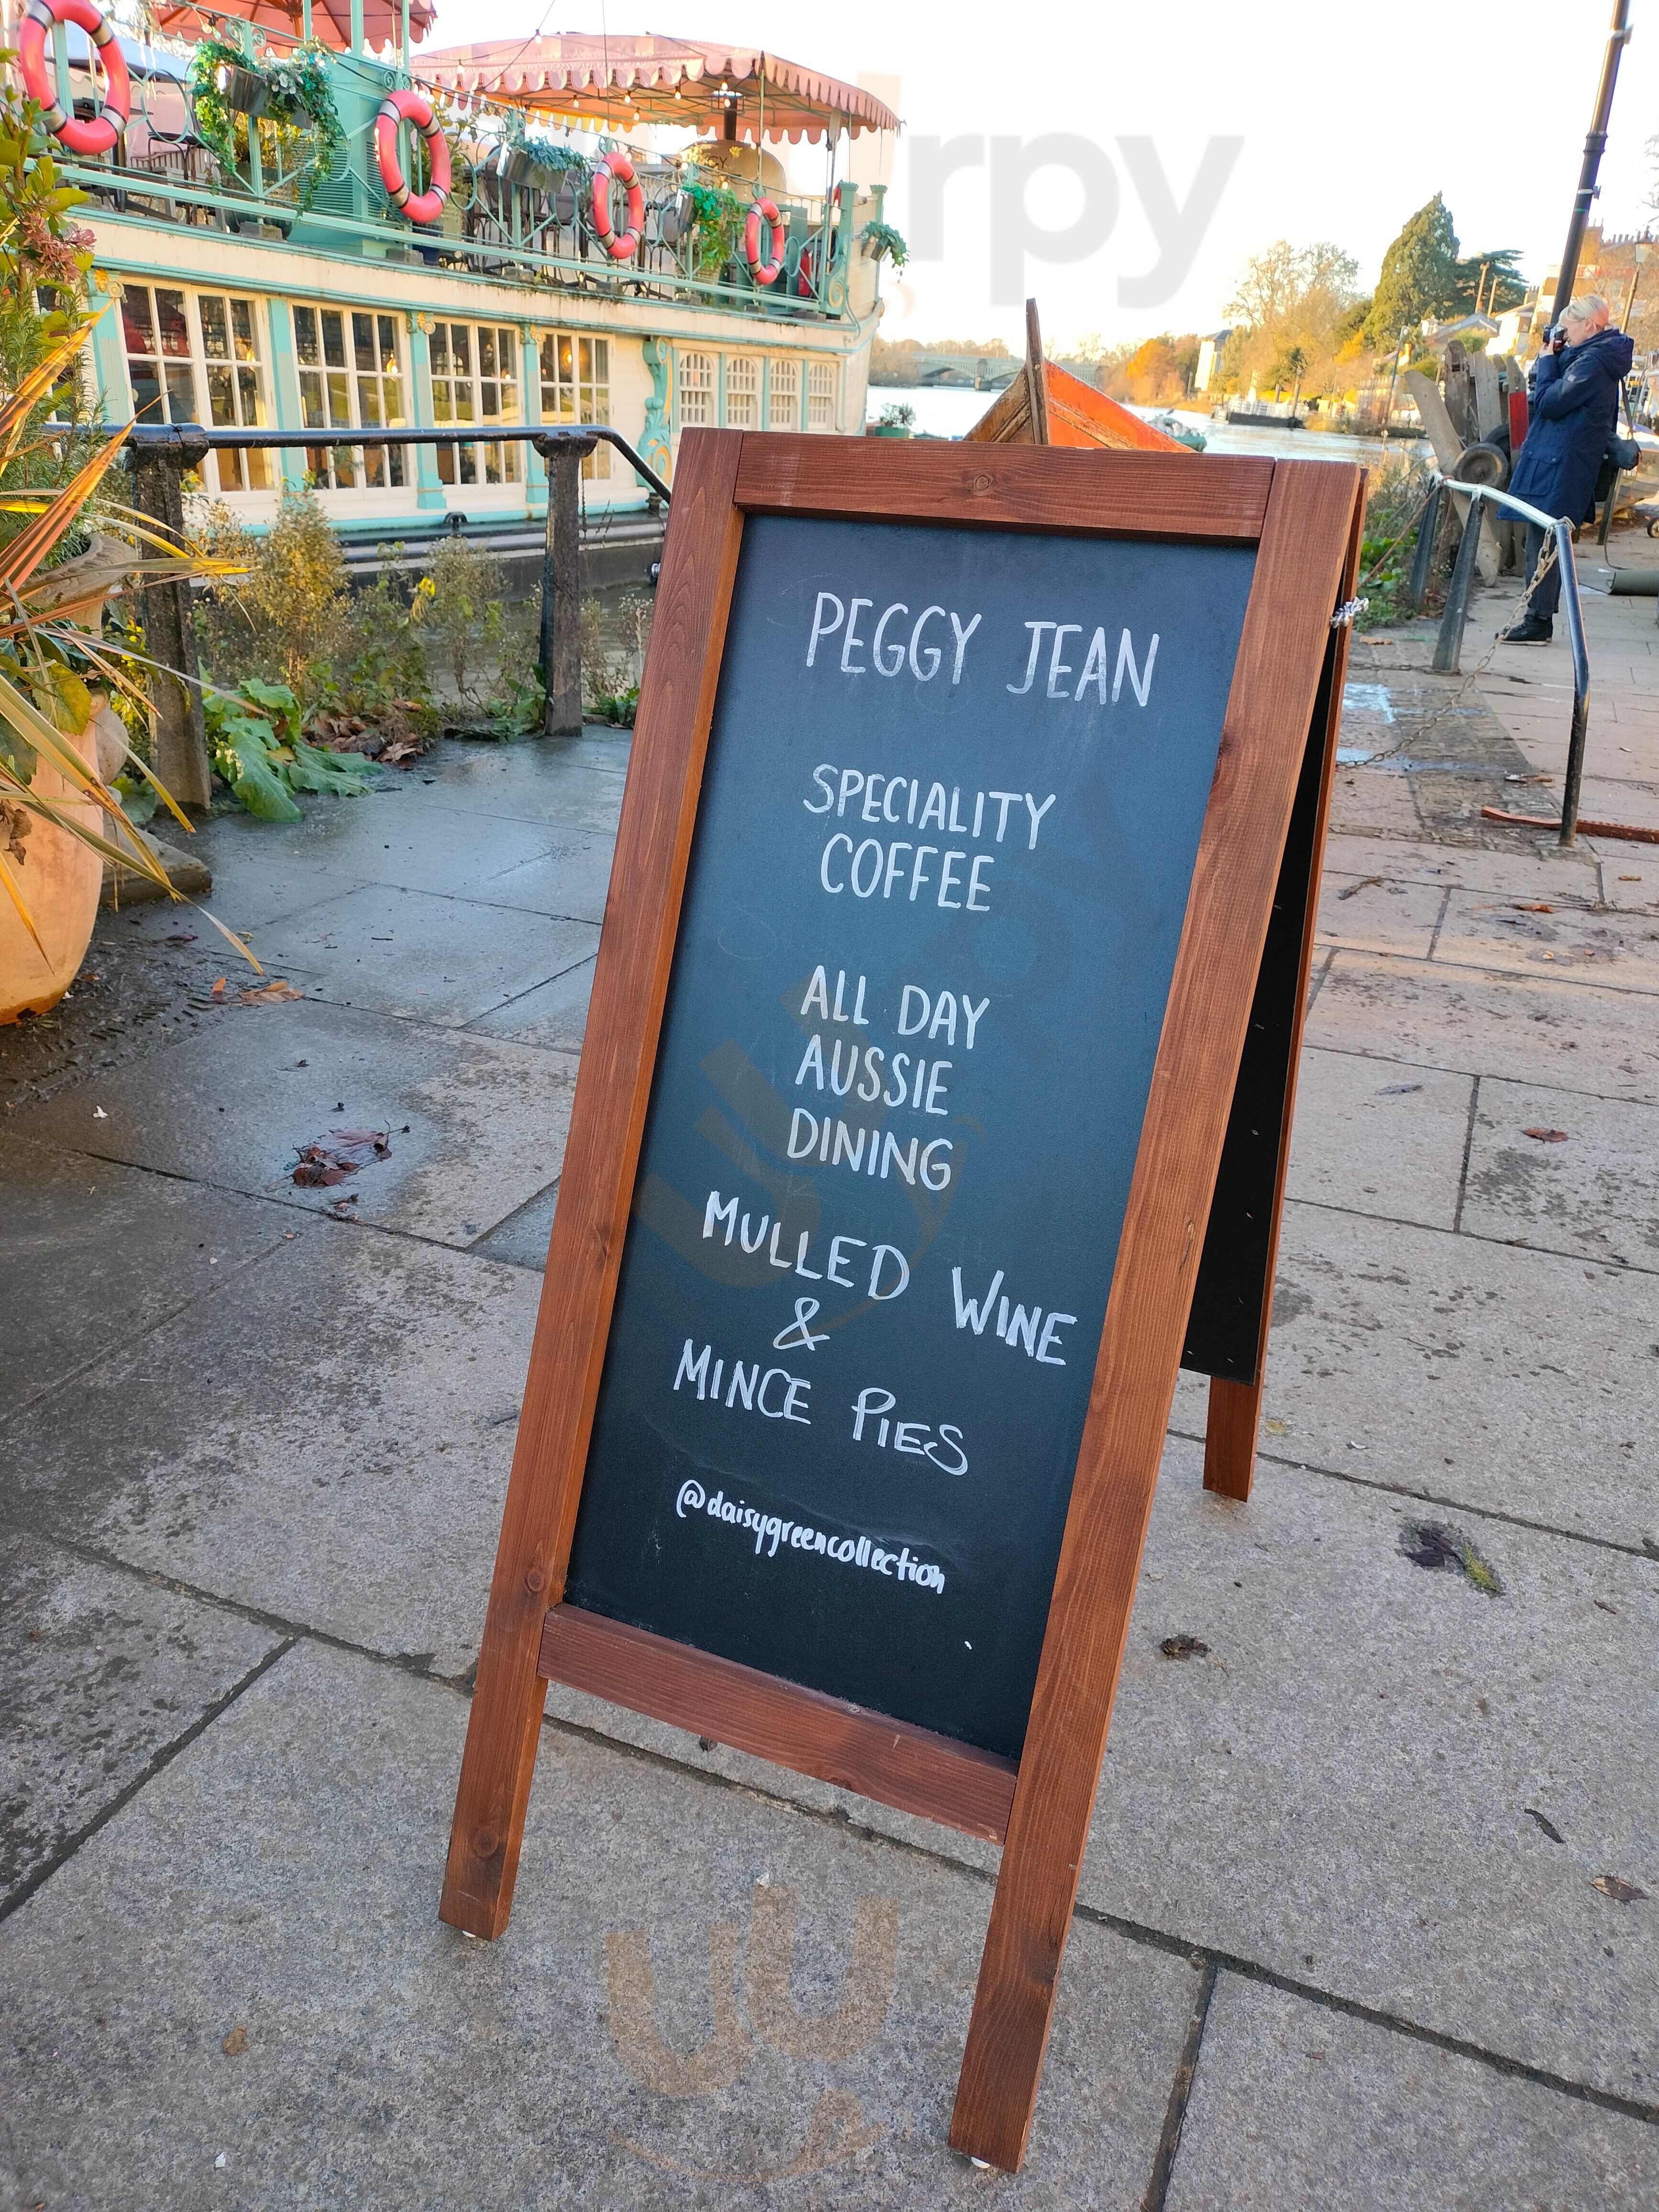 PEGGY JEAN
SPECIALITY
COFFEE
ALL DAY
AUSSIE
DINING
MULLED WINE
&
MINCE PIES
@daisygreencollection